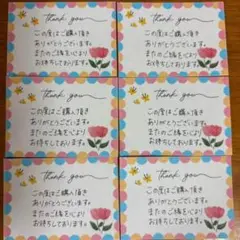 thank you
この度はご購入頂き
ありがとうございます。
またのご縁を心より
お待ちしております。
thank you
この度はご購入頂き
ありがとうございます。
またのご縁を心より
お待ちしております。
thank you
この度はご購入頂き
ありがとうございます。
またのご縁を心より
お待ちしております。
thank you
この度はご購入頂き
ありがとうございます。
またのご縁を心より
お待ちしております。
thank you
この度はご購入頂き
ありがとうございます。
またのご縁を心より
お待ちしております。
thank you
この度はご購入頂き
ありがとうございます。
またのご縁を心より
お待ちしております。